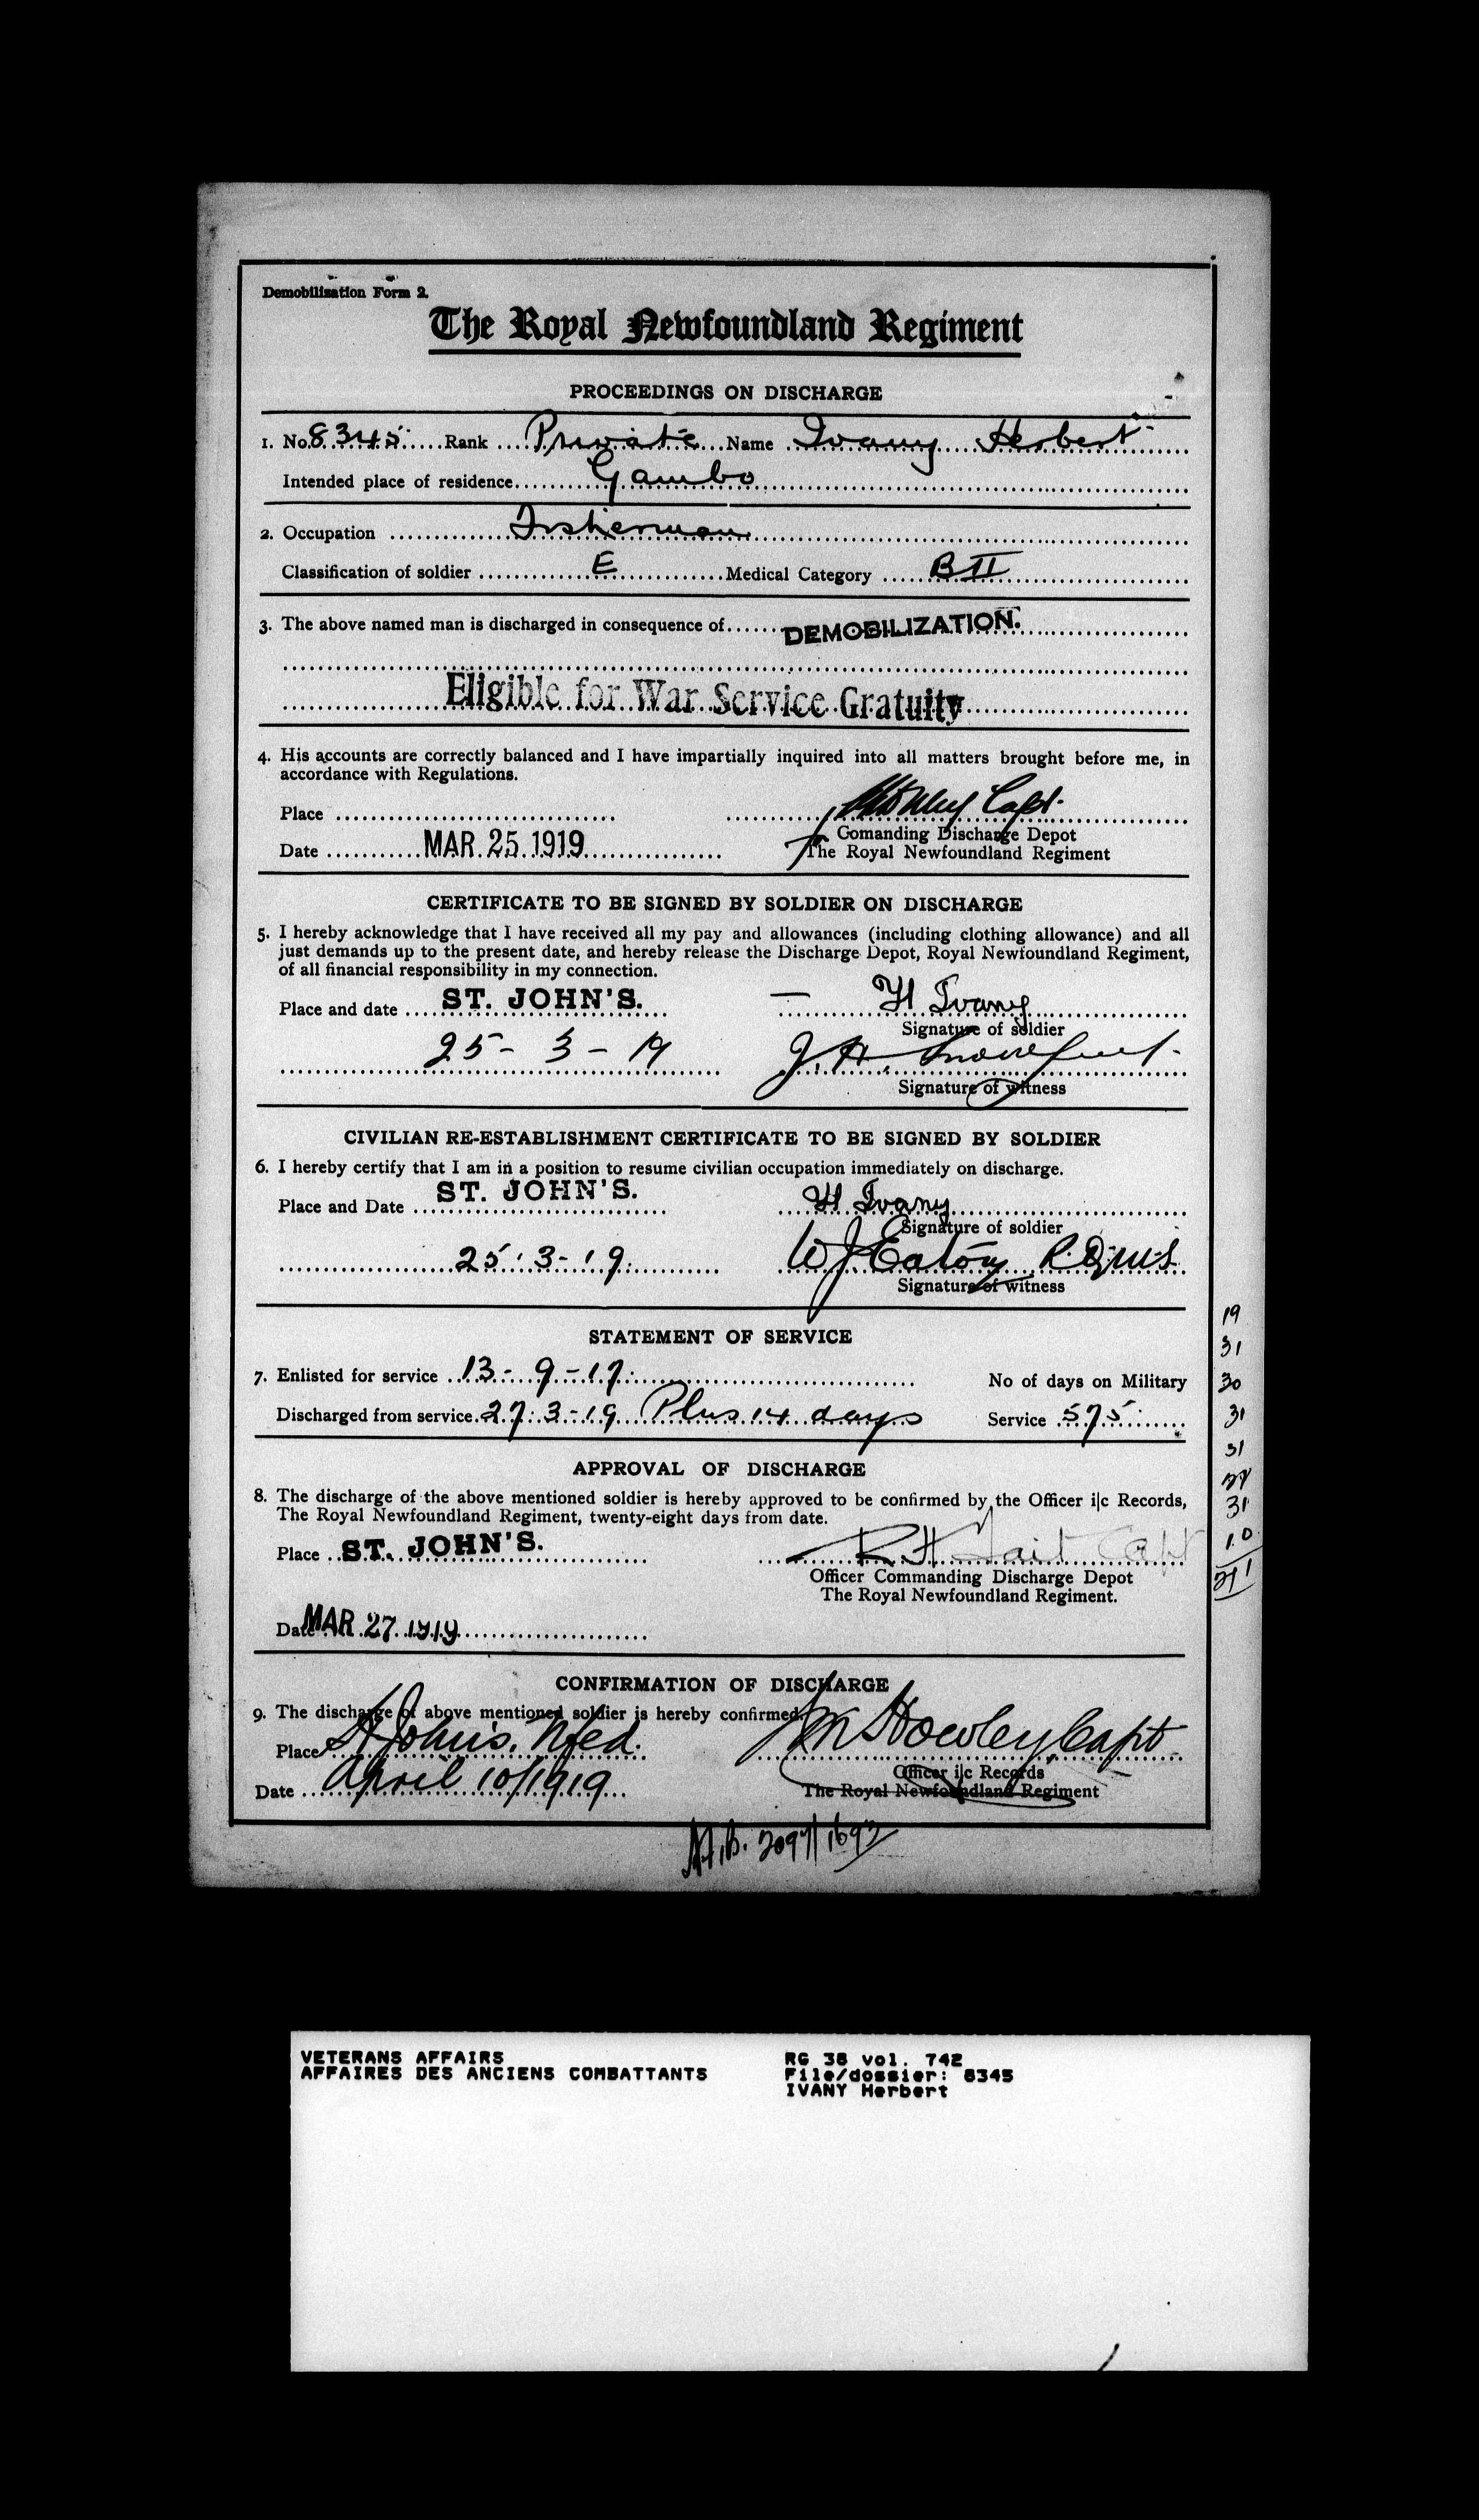 Demobilisation Form 2.
The Royal Newfoundland Regiment
PROCEEDINGS ON DISCHARGE
1. No. 8345 Rank Private Name Ivany Herbert
Intended place of residence Gambo
2. Occupation Fisherman
Classification of soldier E Medical Category B II
3. The above named man is discharged in consequence of DEMOBILIZATION.
Eligible for War Service Gratuity
4. His accounts are correctly balanced and I have impartially inquired into all matters brought before me, in
accordance with Regulations.
Place Capt.
Comanding Discharge Depot
Date MAR 25 1919 The Royal Newfoundland Regiment
CERTIFICATE TO BE SIGNED BY SOLDIER ON DISCHARGE
5. I hereby acknowledge that I have received all my pay and allowances (including clothing allowance) and all
just demands up to the present date, and hereby release the Discharge Depot, Royal Newfoundland Regiment,
of all financial responsibility in my connection.
Place and date ST. JOHN'S. H Ivany
Signature of soldier
25 - 3 - 19 J. H.
Signature of witness
CIVILIAN RE-ESTABLISHMENT CERTIFICATE TO BE SIGNED BY SOLDIER
6. I hereby certify that I am in a position to resume civilian occupation immediately on discharge.
Place and Date ST. JOHN'S. H Ivany
Signature of soldier
25 - 3 - 19. W J Eaton RQMS
Signature of witness
STATEMENT OF SERVICE
7. Enlisted for service 13 - 9 - 17. No of days on Military
Discharged from service 27 - 3 - 19 Plus 14 days Service 575
APPROVAL OF DISCHARGE
8. The discharge of the above mentioned soldier is hereby approved to be confirmed by the Officer i|c Records,
The Royal Newfoundland Regiment, twenty-eight days from date.
Place ST. JOHN'S. R H Tait Capt
Officer Commanding Discharge Depot
The Royal Newfoundland Regiment.
Date MAR 27 1919
CONFIRMATION OF DISCHARGE
9. The discharge of above mentioned soldier is hereby confirmed
Place St John's, Nfld. Howley, Capt
Officer i|c Records
Date April 10/1919 The Royal Newfoundland Regiment
2097/1692
19
31
30
31
31
28
31
10
211
VETERANS AFFAIRS
AFFAIRES DES ANCIENS COMBATTANTS
RG 38 vol. 742
File/dossier: 8345
IVANY Herbert